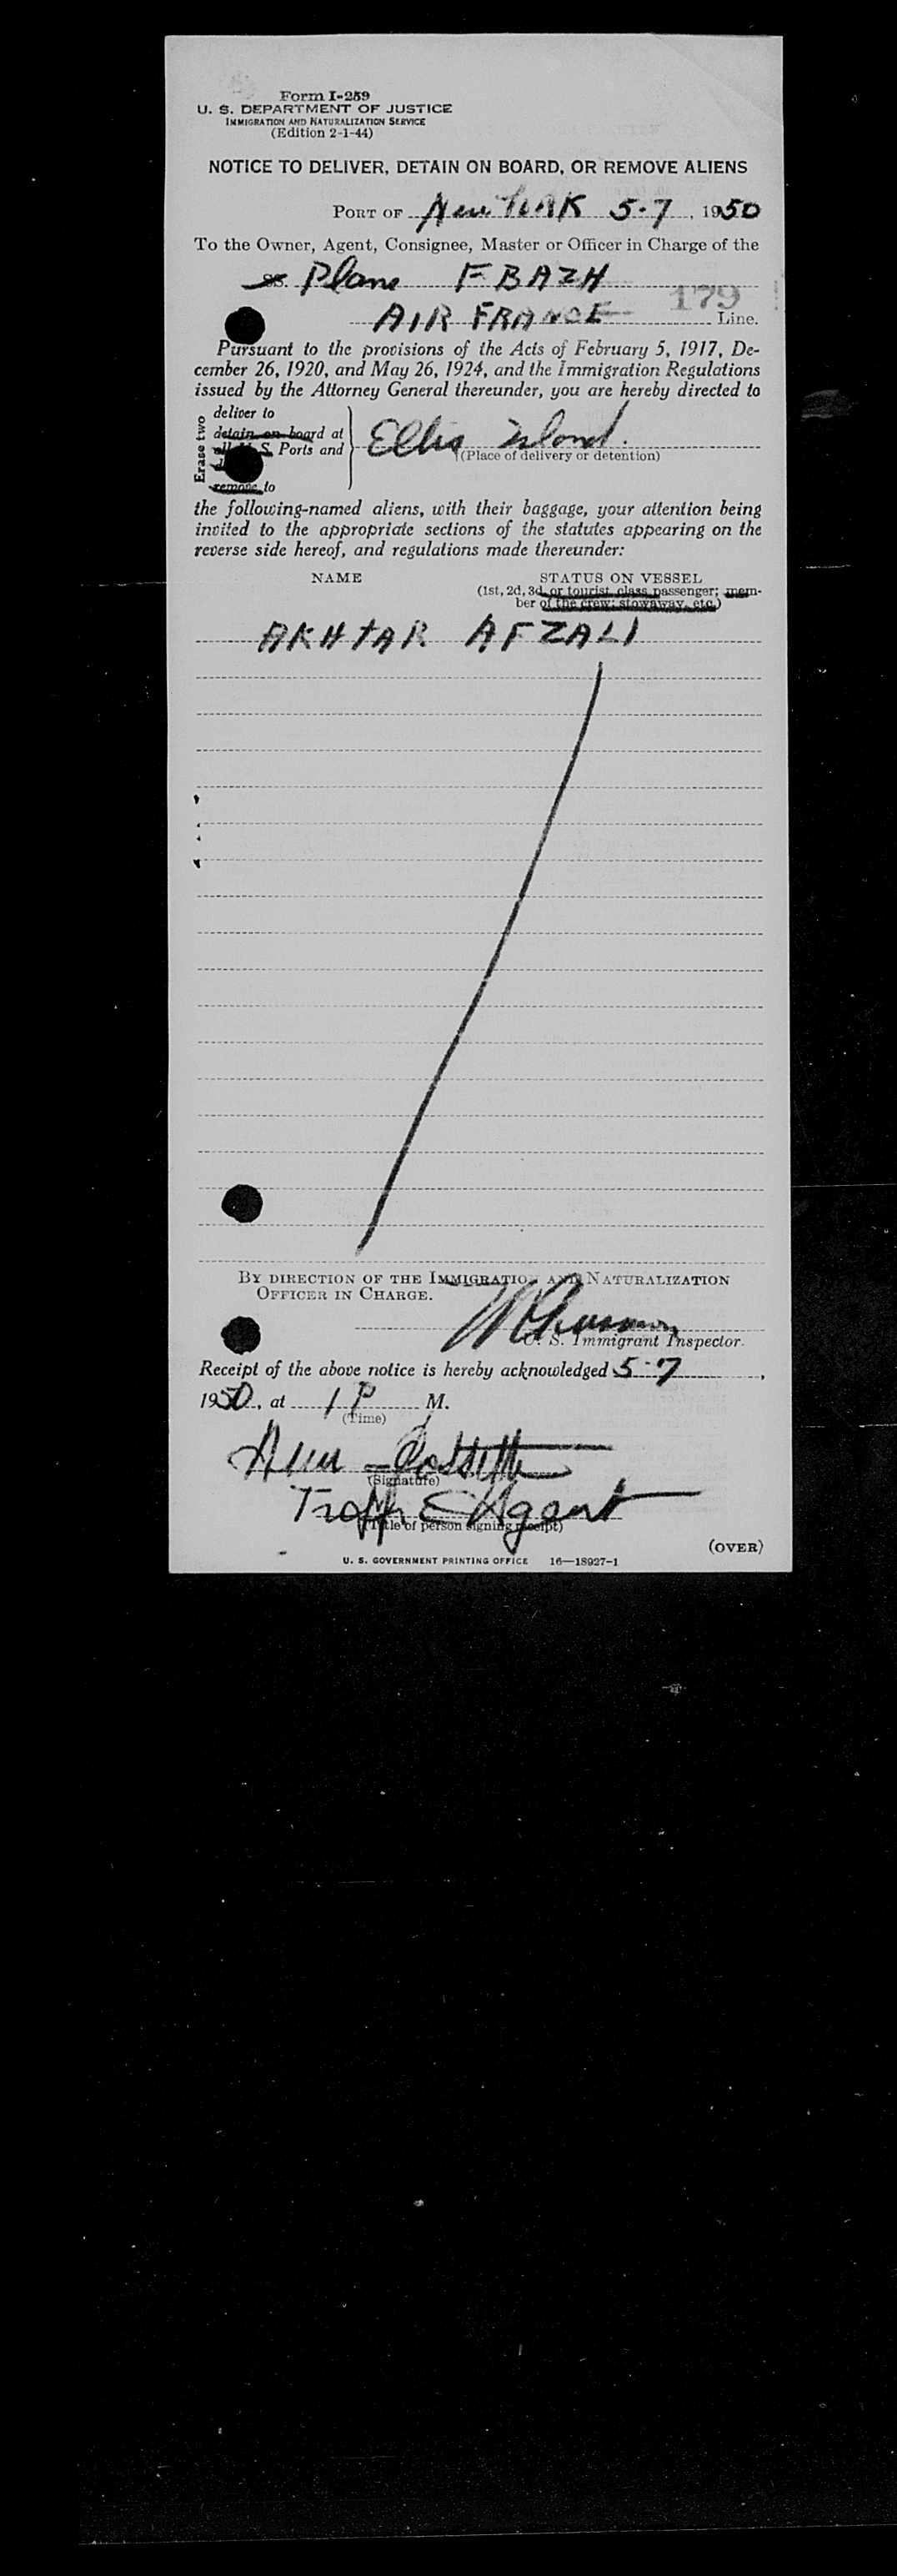 Form I-259
U. S. DEPARTMENT OF JUSTICE
IMMIGRATION AND NATURALIZATION SERVICE
(Edition 2-1-44)
NOTICE TO DELIVER, DETAIN ON BOARD, OR REMOVE ALIENS
PORT OF New York 5-7, 1950
To the Owner, Agent, Consignee, Master or Officer in Charge of the
SS. Plane F BAZH
179
AIR FRANCE Line.
Pursuant to the provisions of the Acts of February 5, 1917, De-
cember 26, 1920, and May 26, 1924, and the Immigration Regulations
issued by the Attorney General thereunder, you are hereby directed to
Erase two
deliver to
detain on board at
S. Ports and
remove to
Ellis Island.
(Place of delivery or detention)
the following-named aliens, with their baggage, your attention being
invited to the appropriate sections of the statutes appearing on the
reverse side hereof, and regulations made thereunder:
NAME STATUS ON VESSEL
(1st, 2d, 3d, or tourist class passenger; mem-
ber of the crew; stowaway, etc.)
AKHTAR AFZALI
BY DIRECTION OF THE IMMIGRATION AND NATURALIZATION
OFFICER IN CHARGE.
U. S. Immigrant Inspector.
Receipt of the above notice is hereby acknowledged 5-7,
1950, at 1 P M.
(Time)
(Signature)
Traffic Agent
(Title of person signing receipt)
(OVER)
U. S. GOVERNMENT PRINTING OFFICE 16—18927-1